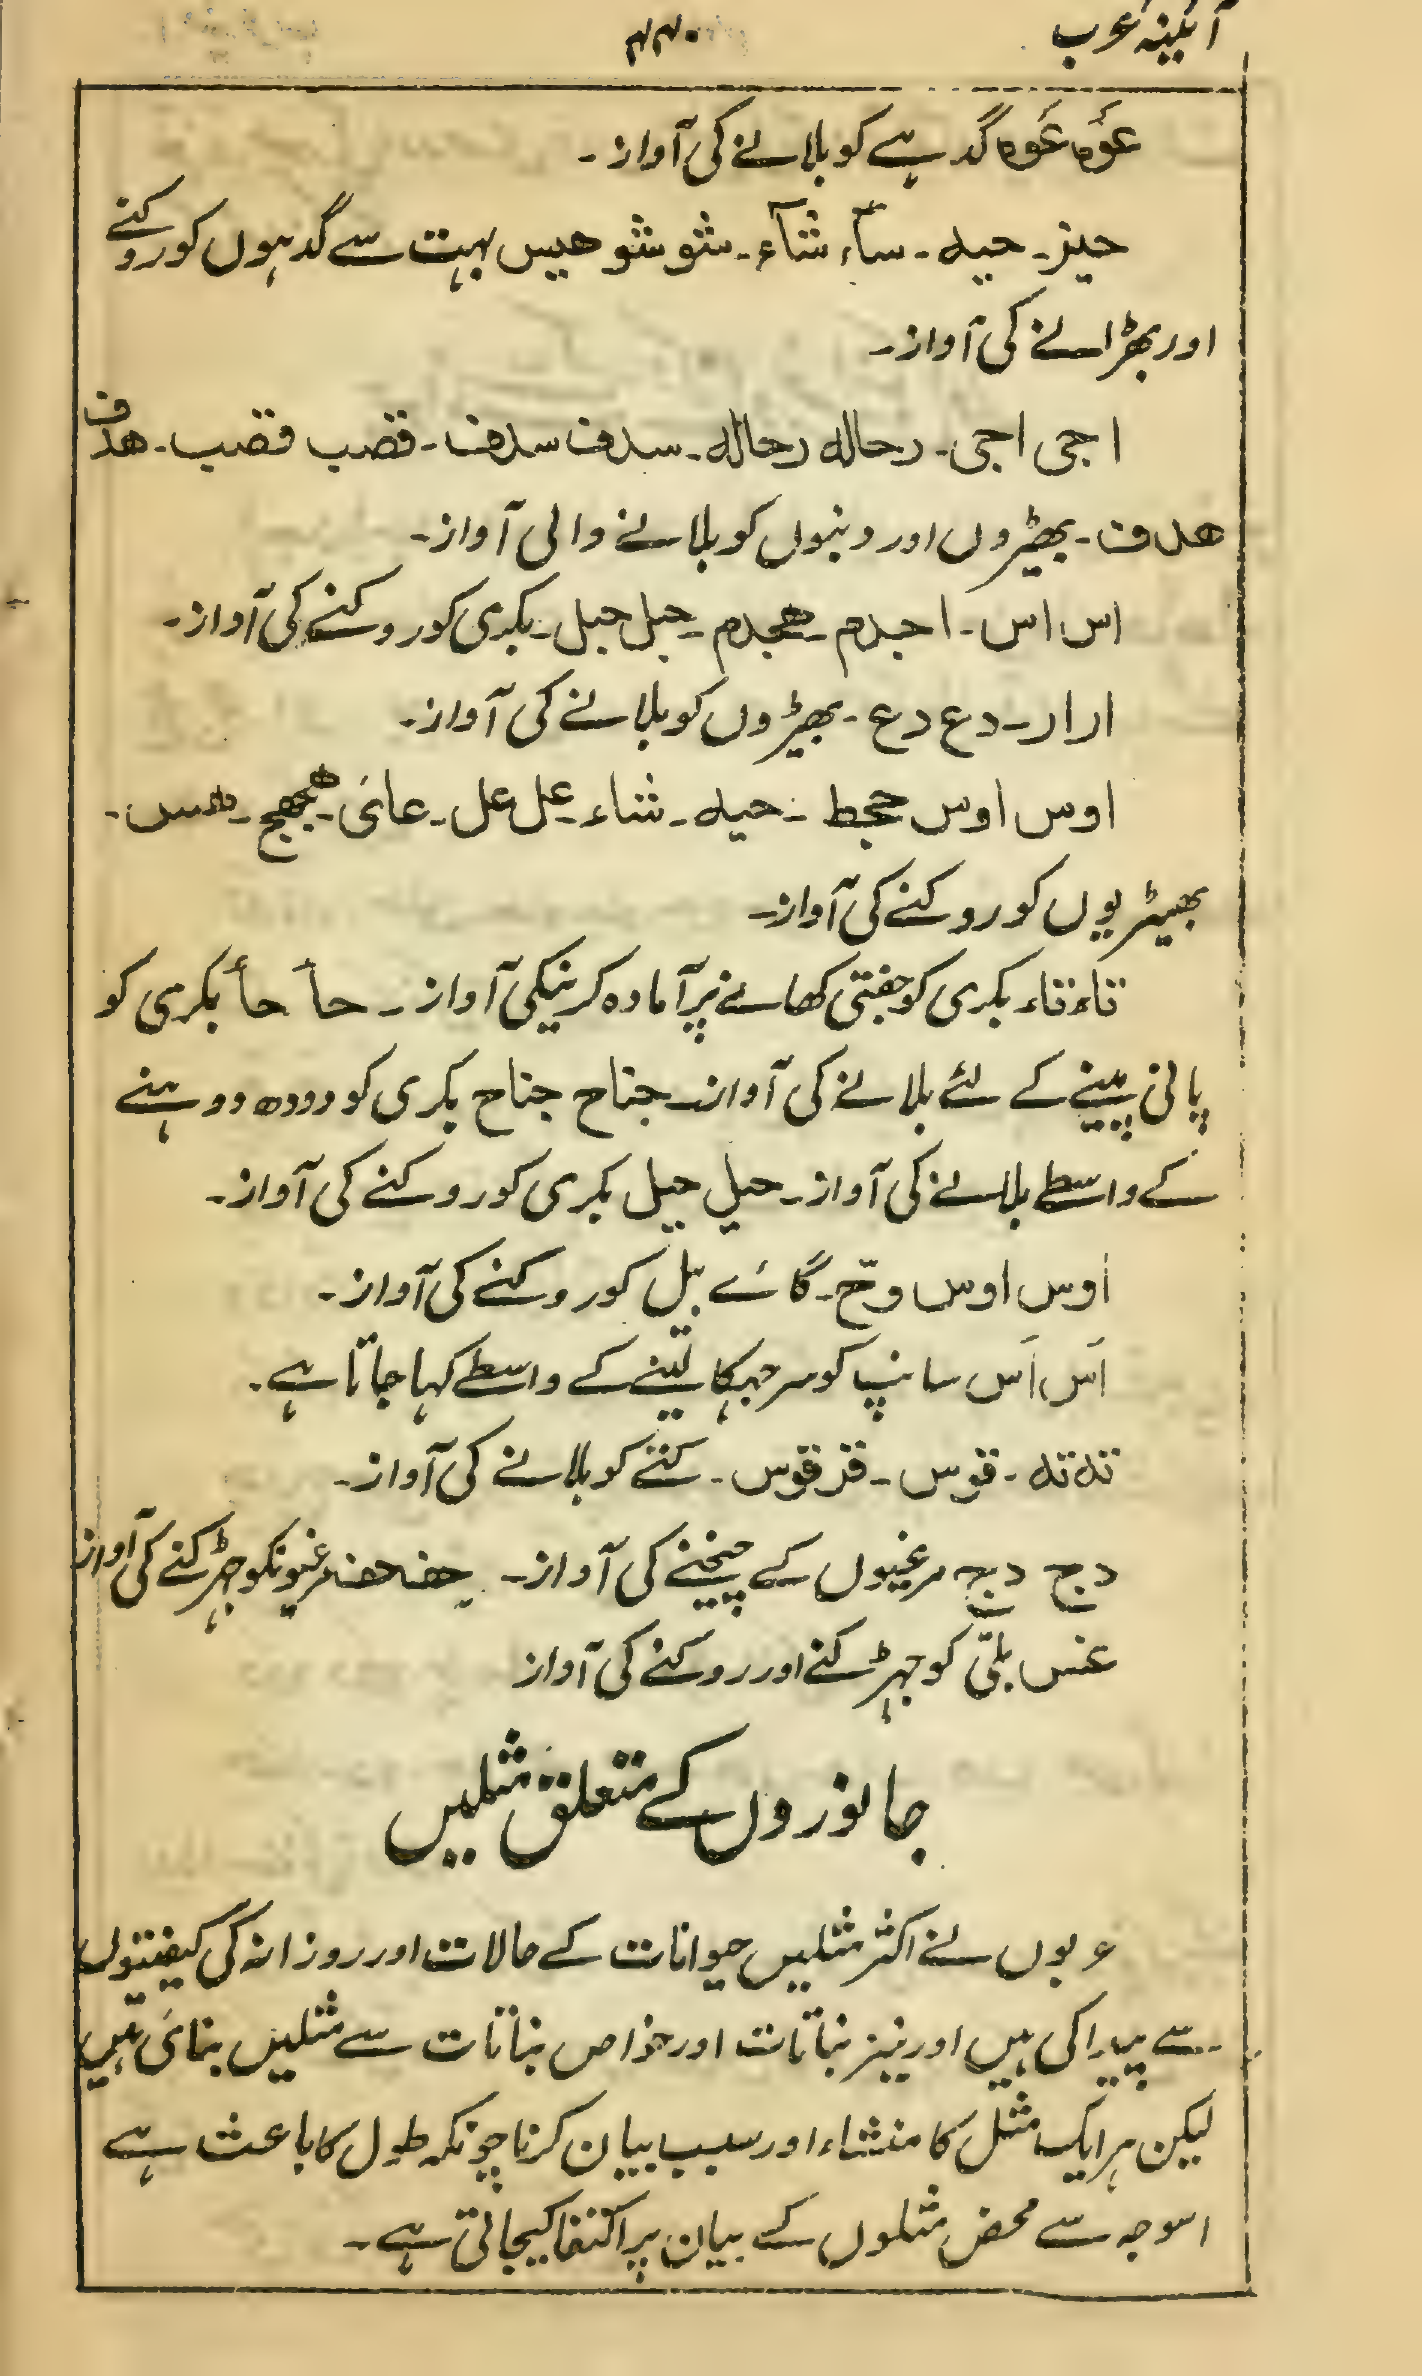 آئینۂ عرب
۴۴۰
عَوْہ عَوْہ گدہے کو بلانے کی آواز۔
حیز۔ حیہ۔ سآء شآء۔ شو شو ھیس بہت سے گدہوں کو روکنے
اور بھڑانے کی آواز۔
اجی اجی۔ رحالہ رحالہ۔ سدف سدف۔ قصب قصب۔ ھدف
ھدف۔ بھیڑوں اور دنبوں کو بلانے والی آواز۔
اس اس۔ اجدم۔ ھجدم۔ حبل حبل۔ بکری کو روکنے کی آواز۔
ار ار۔ دع دع۔ بھیڑوں کو بلانے کی آواز۔
اوس اوس حجط۔ حیہ۔ شاء۔ عل عل۔ عائ۔ ھجھج۔
بھیڑیوں کو روکنے کی آواز۔
تاء تاء بکری کو جفتی کھانے پر آمادہ کرنیکی آواز۔ حأ حأ بکری کو
پانی پینے کے لئے بلانے کی آواز۔ جناح جناح بکری کو دودھ دوہنے
کے واسطے بلانے کی آواز۔ حیل حیل بکری کو روکنے کی آواز۔
اوس اوس وحّ۔ گائے بیل کو روکنے کی آواز۔
اَس اَس سانپ کو سر جہکا لینے کے واسطے کہا جاتا ہے۔
تہ تہ۔ قوس۔ قز قوس۔ کتے کو بلانے کی آواز۔
دج دج مرغیوں کے چیخنے کی آواز۔ مرغیونکو جہڑکنے کی آواز
عنس بلّی کو جہڑکنے اور روکنے کی آواز
جانوروں کے متعلق مثلیں
عربوں نے اکثر مثلیں حیوانات کے حالات اور روزانہ کی کیفیتوں
سے پیدا کی ہیں اور نیز نباتات اور خواص نباتات سے مثلیں بنائی ہیں
لیکن ہر ایک مثل کا منشاء اور سبب بیان کرنا چونکہ طول کا باعث ہے
اسوجہ سے محض مثلوں کے بیان پر اکتفا کیجاتی ہے۔